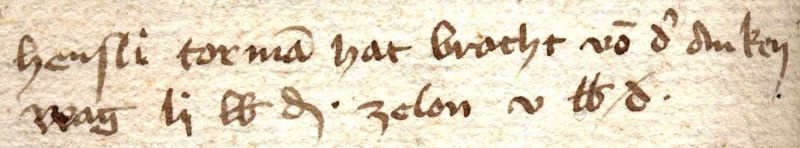 hensli tormā hat brocht vō d' anken
wag li lb d. zelon v lb d.